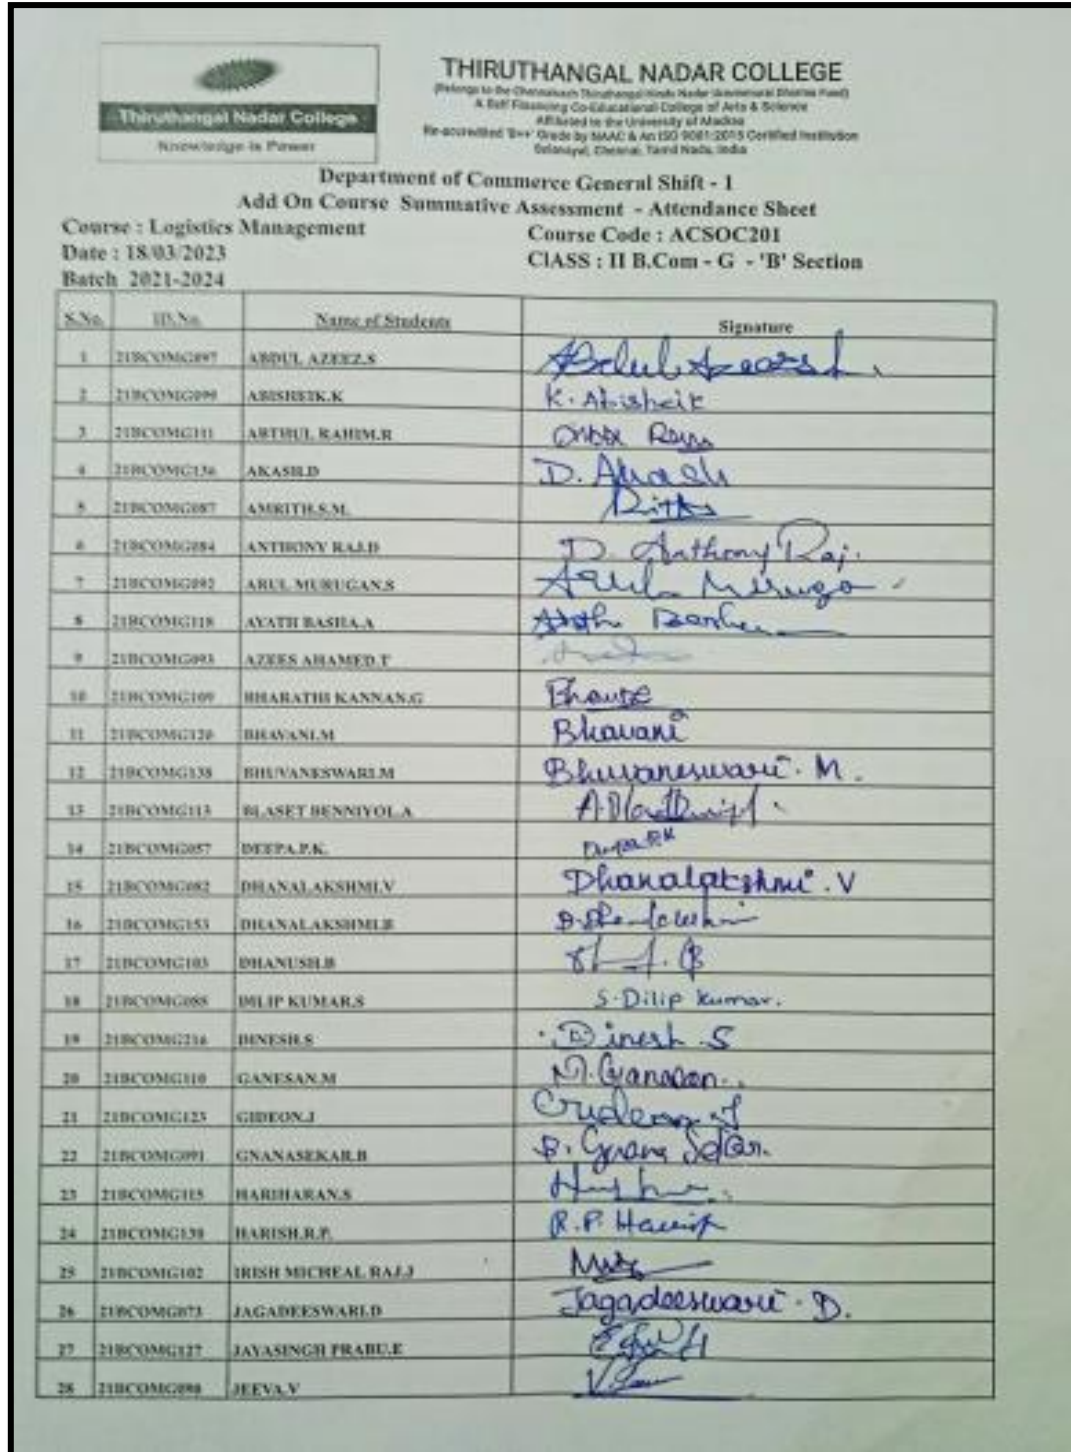 THIRUTHANGAL NADAR COLLEGE
(Belongs to the Chennaivazh Thiruthangal Hindu Nadar Uravinmurai Dharma Fund)
A Self Financing Co-Educational College of Arts & Science
Affiliated to the University of Madras
Re-accredited 'B++' Grade by NAAC & An ISO 9001:2015 Certified Institution
Selavayal, Chennai, Tamil Nadu, India
Thiruthangal Nadar College
Knowledge is Power
Department of Commerce General Shift - 1
Add On Course Summative Assessment - Attendance Sheet
Course : Logistics Management Course Code : ACSOC201
Date : 18/03/2023 ClASS : II B.Com - G - 'B' Section
Batch 2021-2024
S.No. ID.No. Name of Students Signature
1 21BCOMG097 ABDUL AZEEZ.S
2 21BCOMG099 ABISHEIK.K K. Abisheik
3 21BCOMG111 ABTHUL RAHIM.R
4 21BCOMG136 AKASH.D D. Akash
5 21BCOMG087 AMRITH.S.M.
6 21BCOMG084 ANTHONY RAJ.D D. Anthony Raj.
7 21BCOMG092 ARUL MURUGAN.S
8 21BCOMG118 AYATH BASHA.A
9 21BCOMG093 AZEES AHAMED.T
10 21BCOMG109 BHARATHI KANNAN.G
11 21BCOMG120 BHAVANI.M Bhavani
12 21BCOMG138 BHUVANESWARI.M Bhuvaneswari. M.
13 21BCOMG113 BLASET BENNIYOL.A
14 21BCOMG057 DEEPA.P.K. Deepa P.K
15 21BCOMG082 DHANALAKSHMI.V Dhanalakshmi. V
16 21BCOMG153 DHANALAKSHMI.B
17 21BCOMG103 DHANUSH.B
18 21BCOMG088 DILIP KUMAR.S S. Dilip kumar.
19 21BCOMG216 DINESH.S Dinesh. S
20 21BCOMG110 GANESAN.M M. Ganesan.
21 21BCOMG123 GIDEON.J
22 21BCOMG091 GNANASEKAR.B B. Gnana Sekar.
23 21BCOMG115 HARIHARAN.S
24 21BCOMG130 HARISH.R.P. R.P. Harish
25 21BCOMG102 IRISH MICHEAL RAJ.J
26 21BCOMG073 JAGADEESWARI.D Jagadeeswari. D.
27 21BCOMG127 JAYASINGH PRABU.E
28 21BCOMG090 JEEVA.V